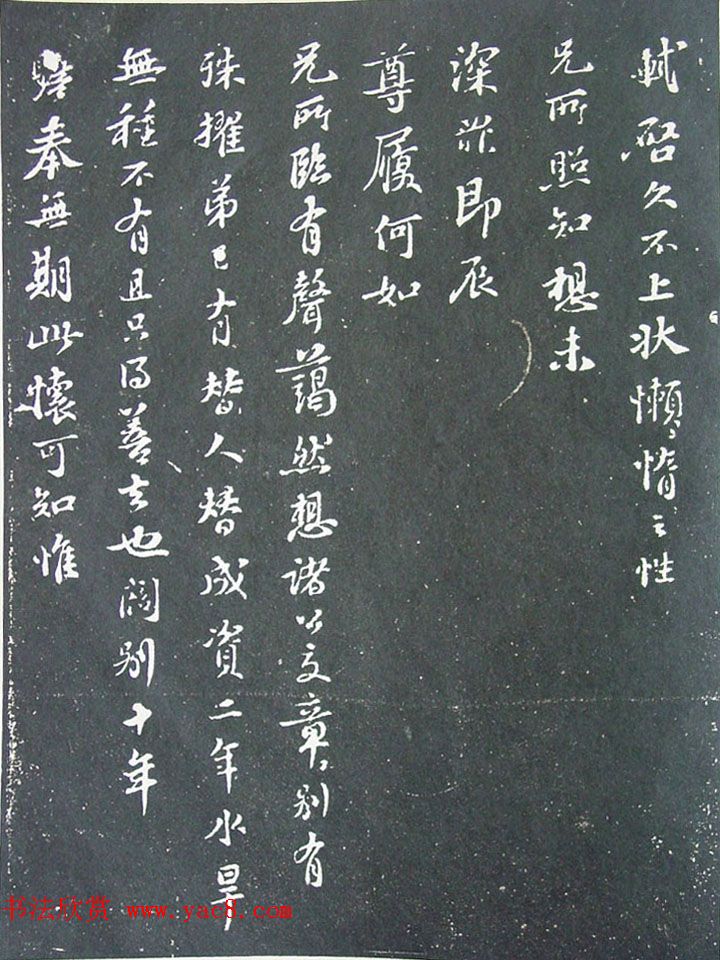 軾啓久不上狀懶惰之性
兄所照知想未
深罪即辰
尊履何如
兄所臨有聲藹然想諸公文章別有
殊擢弟已有替人替成資二年水旱
無種不有且只得善去也闊別十年
奉無期此懷可知惟
书法欣赏 www.yac8.com